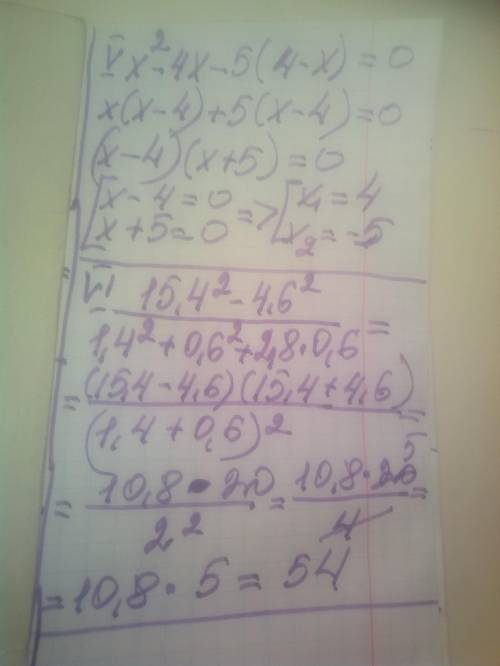 V x²-4x-5(4-x)=0
x(x-4)+5(x-4)=0
(x-4)(x+5)=0
[x-4=0 => [x₁=4
x+5=0 x₂=-5
VI 15,4²-4,6²
1,4²+0,6²+2,8·0,6 =
= (15,4-4,6)(15,4+4,6) =
(1,4+0,6)²
= 10,8·20 / 2² = 10,8·20 5 / 4 =
= 10,8·5=54